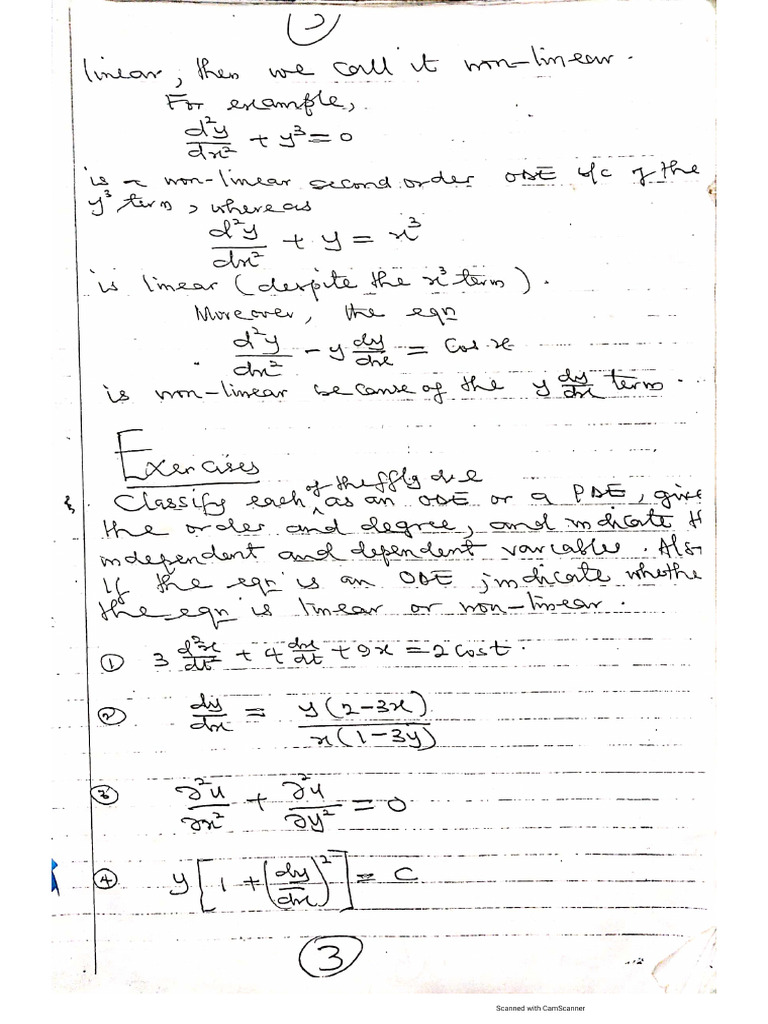 linear, then we call it non-linear.
For example,
d²y/dx² + y³ = 0
is a non-linear second order ODE b/c of the
y³ term, whereas
d²y/dx² + y = x³
is linear (despite the x³ term).
Moreover, the eqn
d²y/dx² - y dy/dx = Cos x
is non-linear because of the y dy/dx term.
Exercises
of the ffg d.e
Classify each ^ as an ODE or a PDE, give
the order and degree, and indicate th
independent and dependent variables. Als
If the eqn is an ODE, indicate whethe
the eqn is linear or non-linear.
① 3 d²x/dt² + 4 dx/dt + 9x = 2 cos t.
② dy/dx = y(2-3x)/x(1-3y)
③ ∂²u/∂x² + ∂²u/∂y² = 0
④ y[1 + (dy/dx)²] = C
3
Scanned with CamScanner